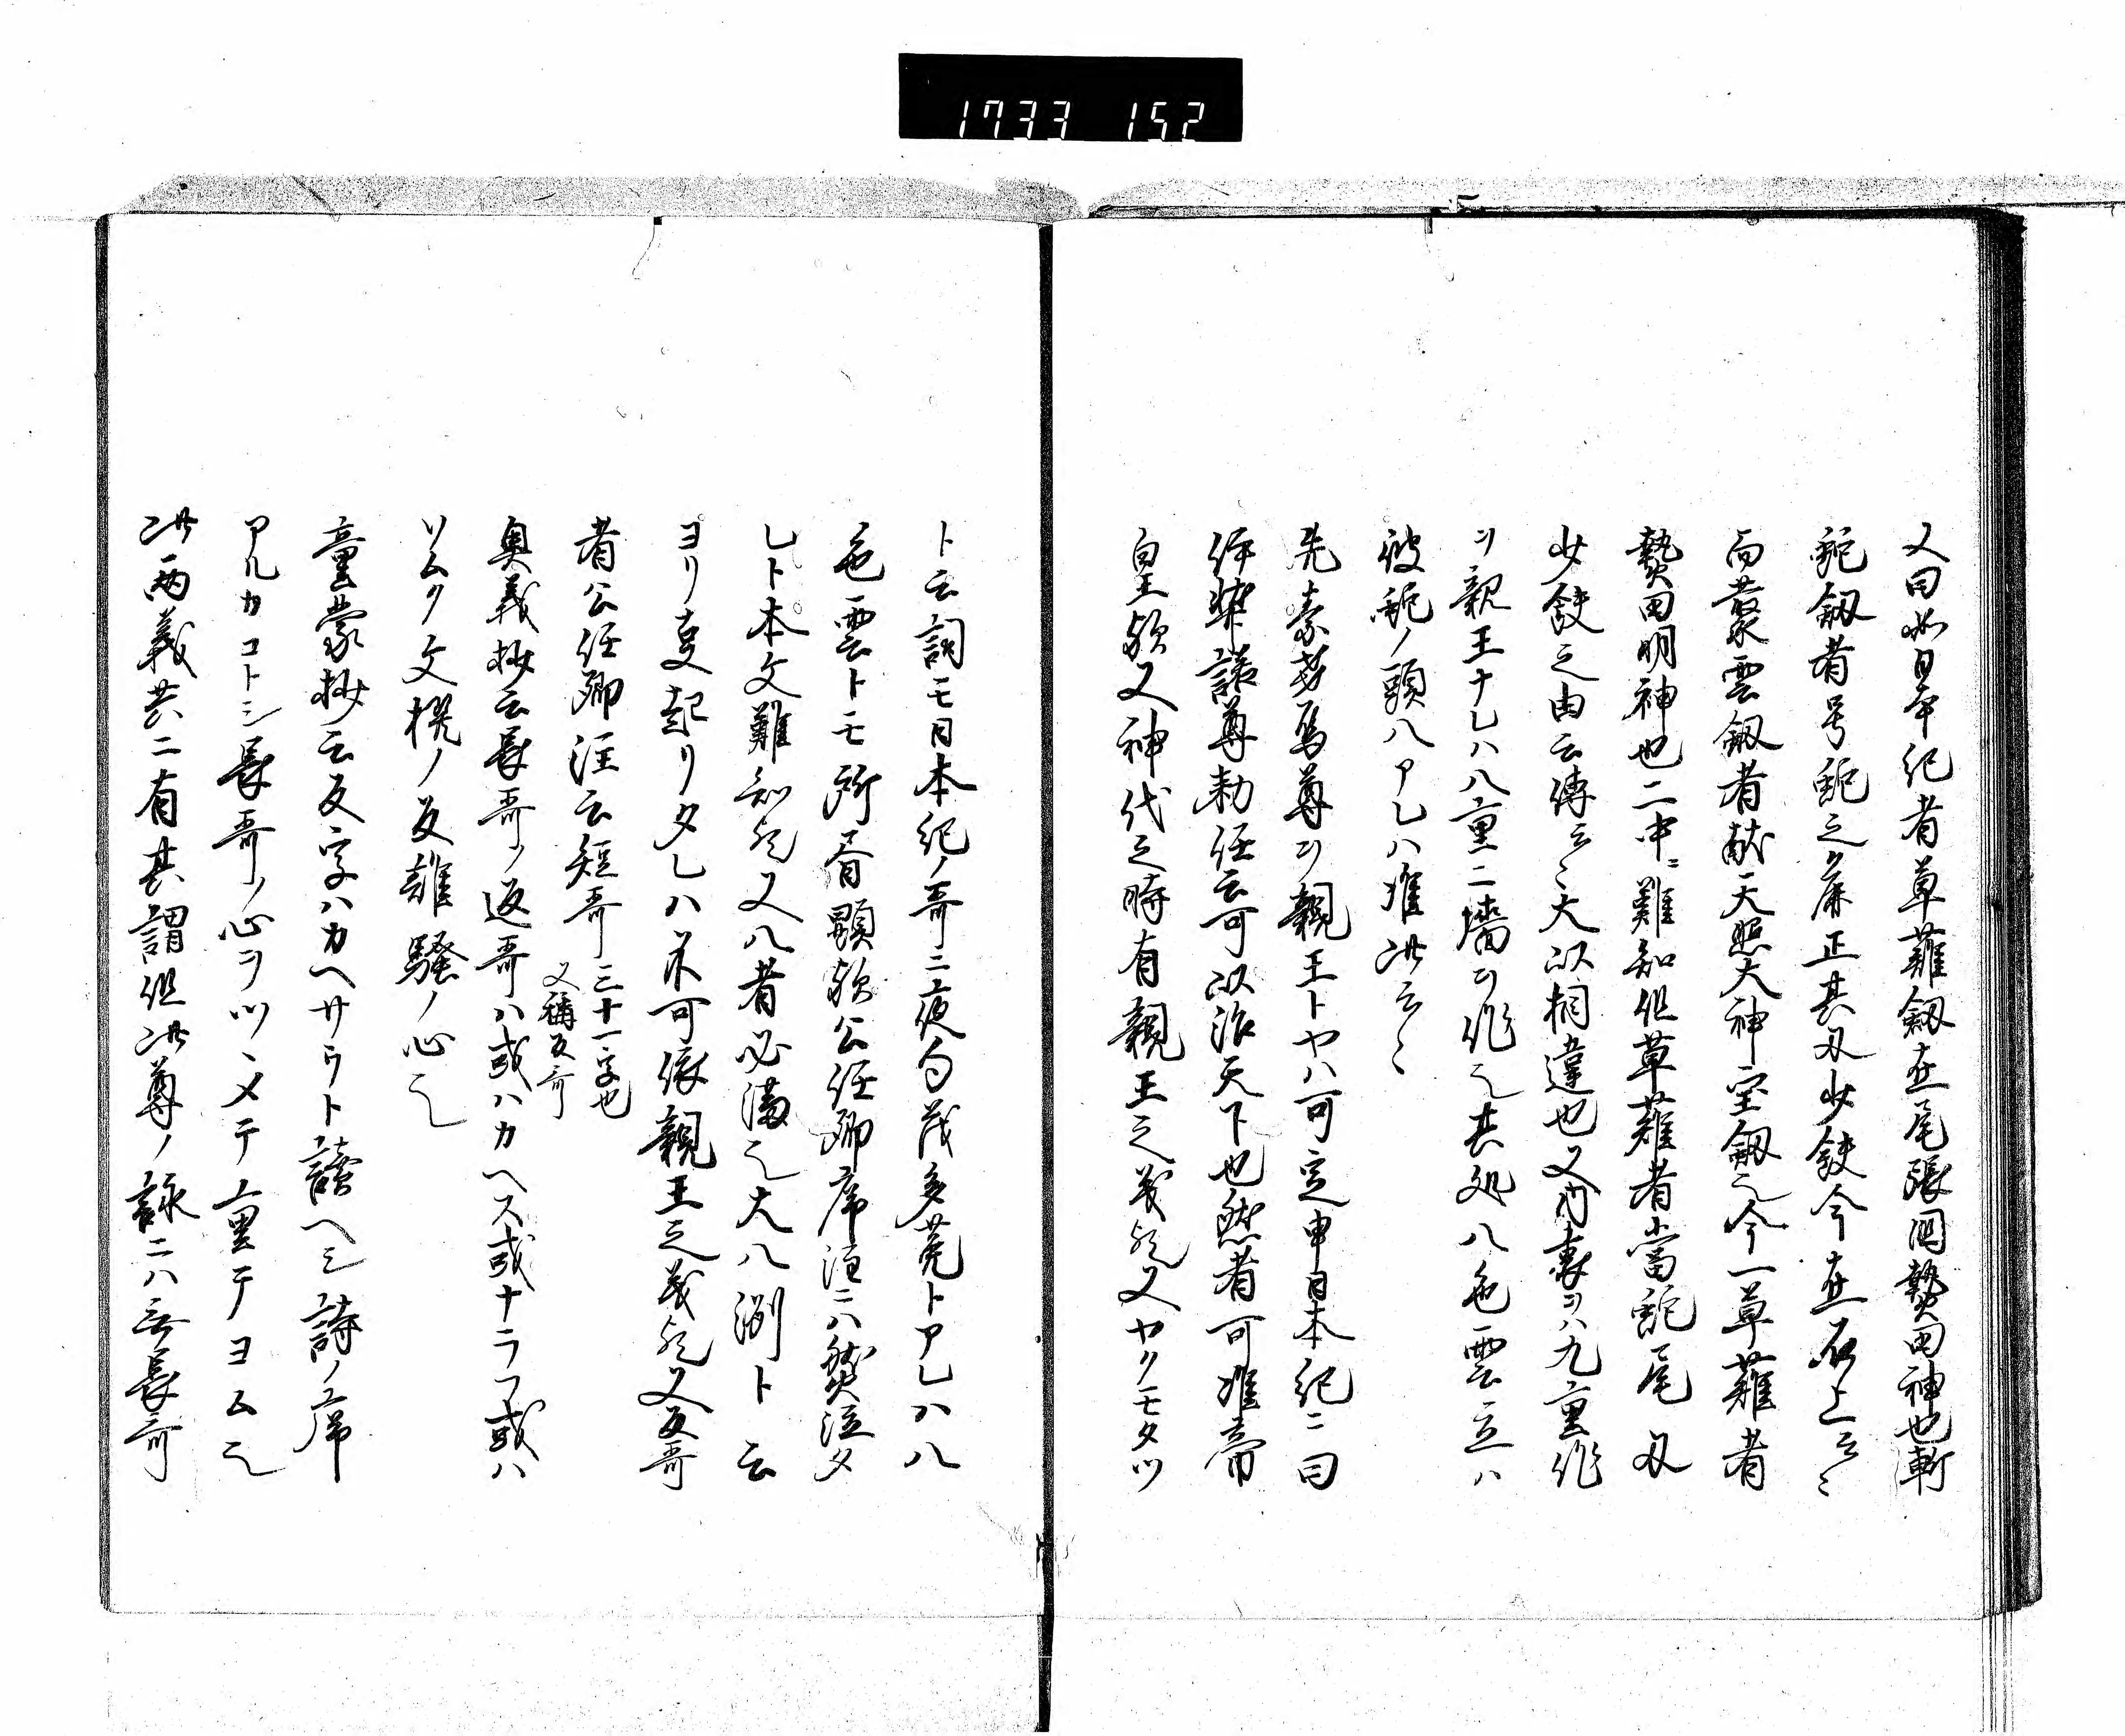 1733 152
又曰如日本紀者草薙釼在尾張国熱田神也斬
蛇釼者号蛇之麁正其刃少鈌今在石上云々
而叢雲釼者献天照大神宝釼之今一草薙者
熱田明神也二中ニ難知但草薙者當蛇尾刃
少鈌之由云傳云々大以相違也又内裏ヲハ九重作
リ親王ナレハ八重ニ墻ヲ作之其処八色雲立ハ
彼蛇ノ頭八アレハ准此云々
先素盞烏尊ヲ親王トヤハ可定申日本紀ニ曰
伊弉諾尊勅任云可以治天下也然者可准帝
皇歟又神代之時有親王之義歟又ヤクモタツ
ト云詞モ日本紀ノ哥ニ夜句茂多菟トアレハ八
色雲トモ所看顕歟公任卿序注ニハ然注タ
レト本文難知歟又八者必満之大八洲ト云
ヨリ事起リタレハ不可依親王之義歟又反哥
者公任卿注云短哥三十一字也
又稱反哥
奥義抄云長哥ノ返哥ハ或ハカヘス或ナラフ或ハ
ソムク文撰ノ反離騒ノ心之
童蒙抄云反字ハカヘサウト讀ヘシ詩ノ序
アルカコトシ長哥ノ心ヲツヽメテ重テヨムこ
此両義共ニ有其謂但此尊ノ詠ニハ无長哥